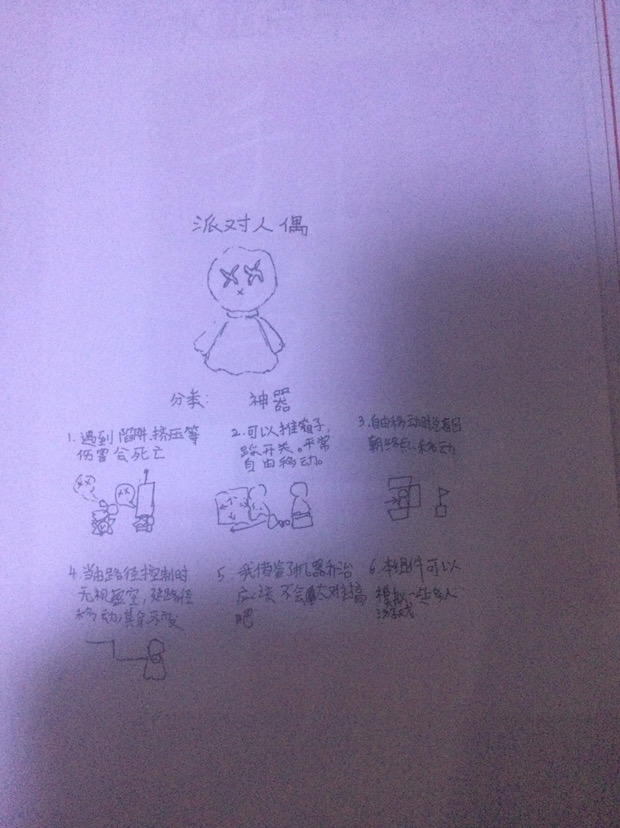 派对人偶
分类: 神器
1. 遇到陷阱.挤压等
伤害会死亡
2. 可以推箱子,
踩开关。平常
自由移动。
3. 自由移动时总有目
朝终点移动
4. 当由路径控制时
无视虚空, 延路径
移动,其余不变
5. 我借鉴了机器乔治
应该不会
吧
6. 本组件可以
模拟一些多人
游戏